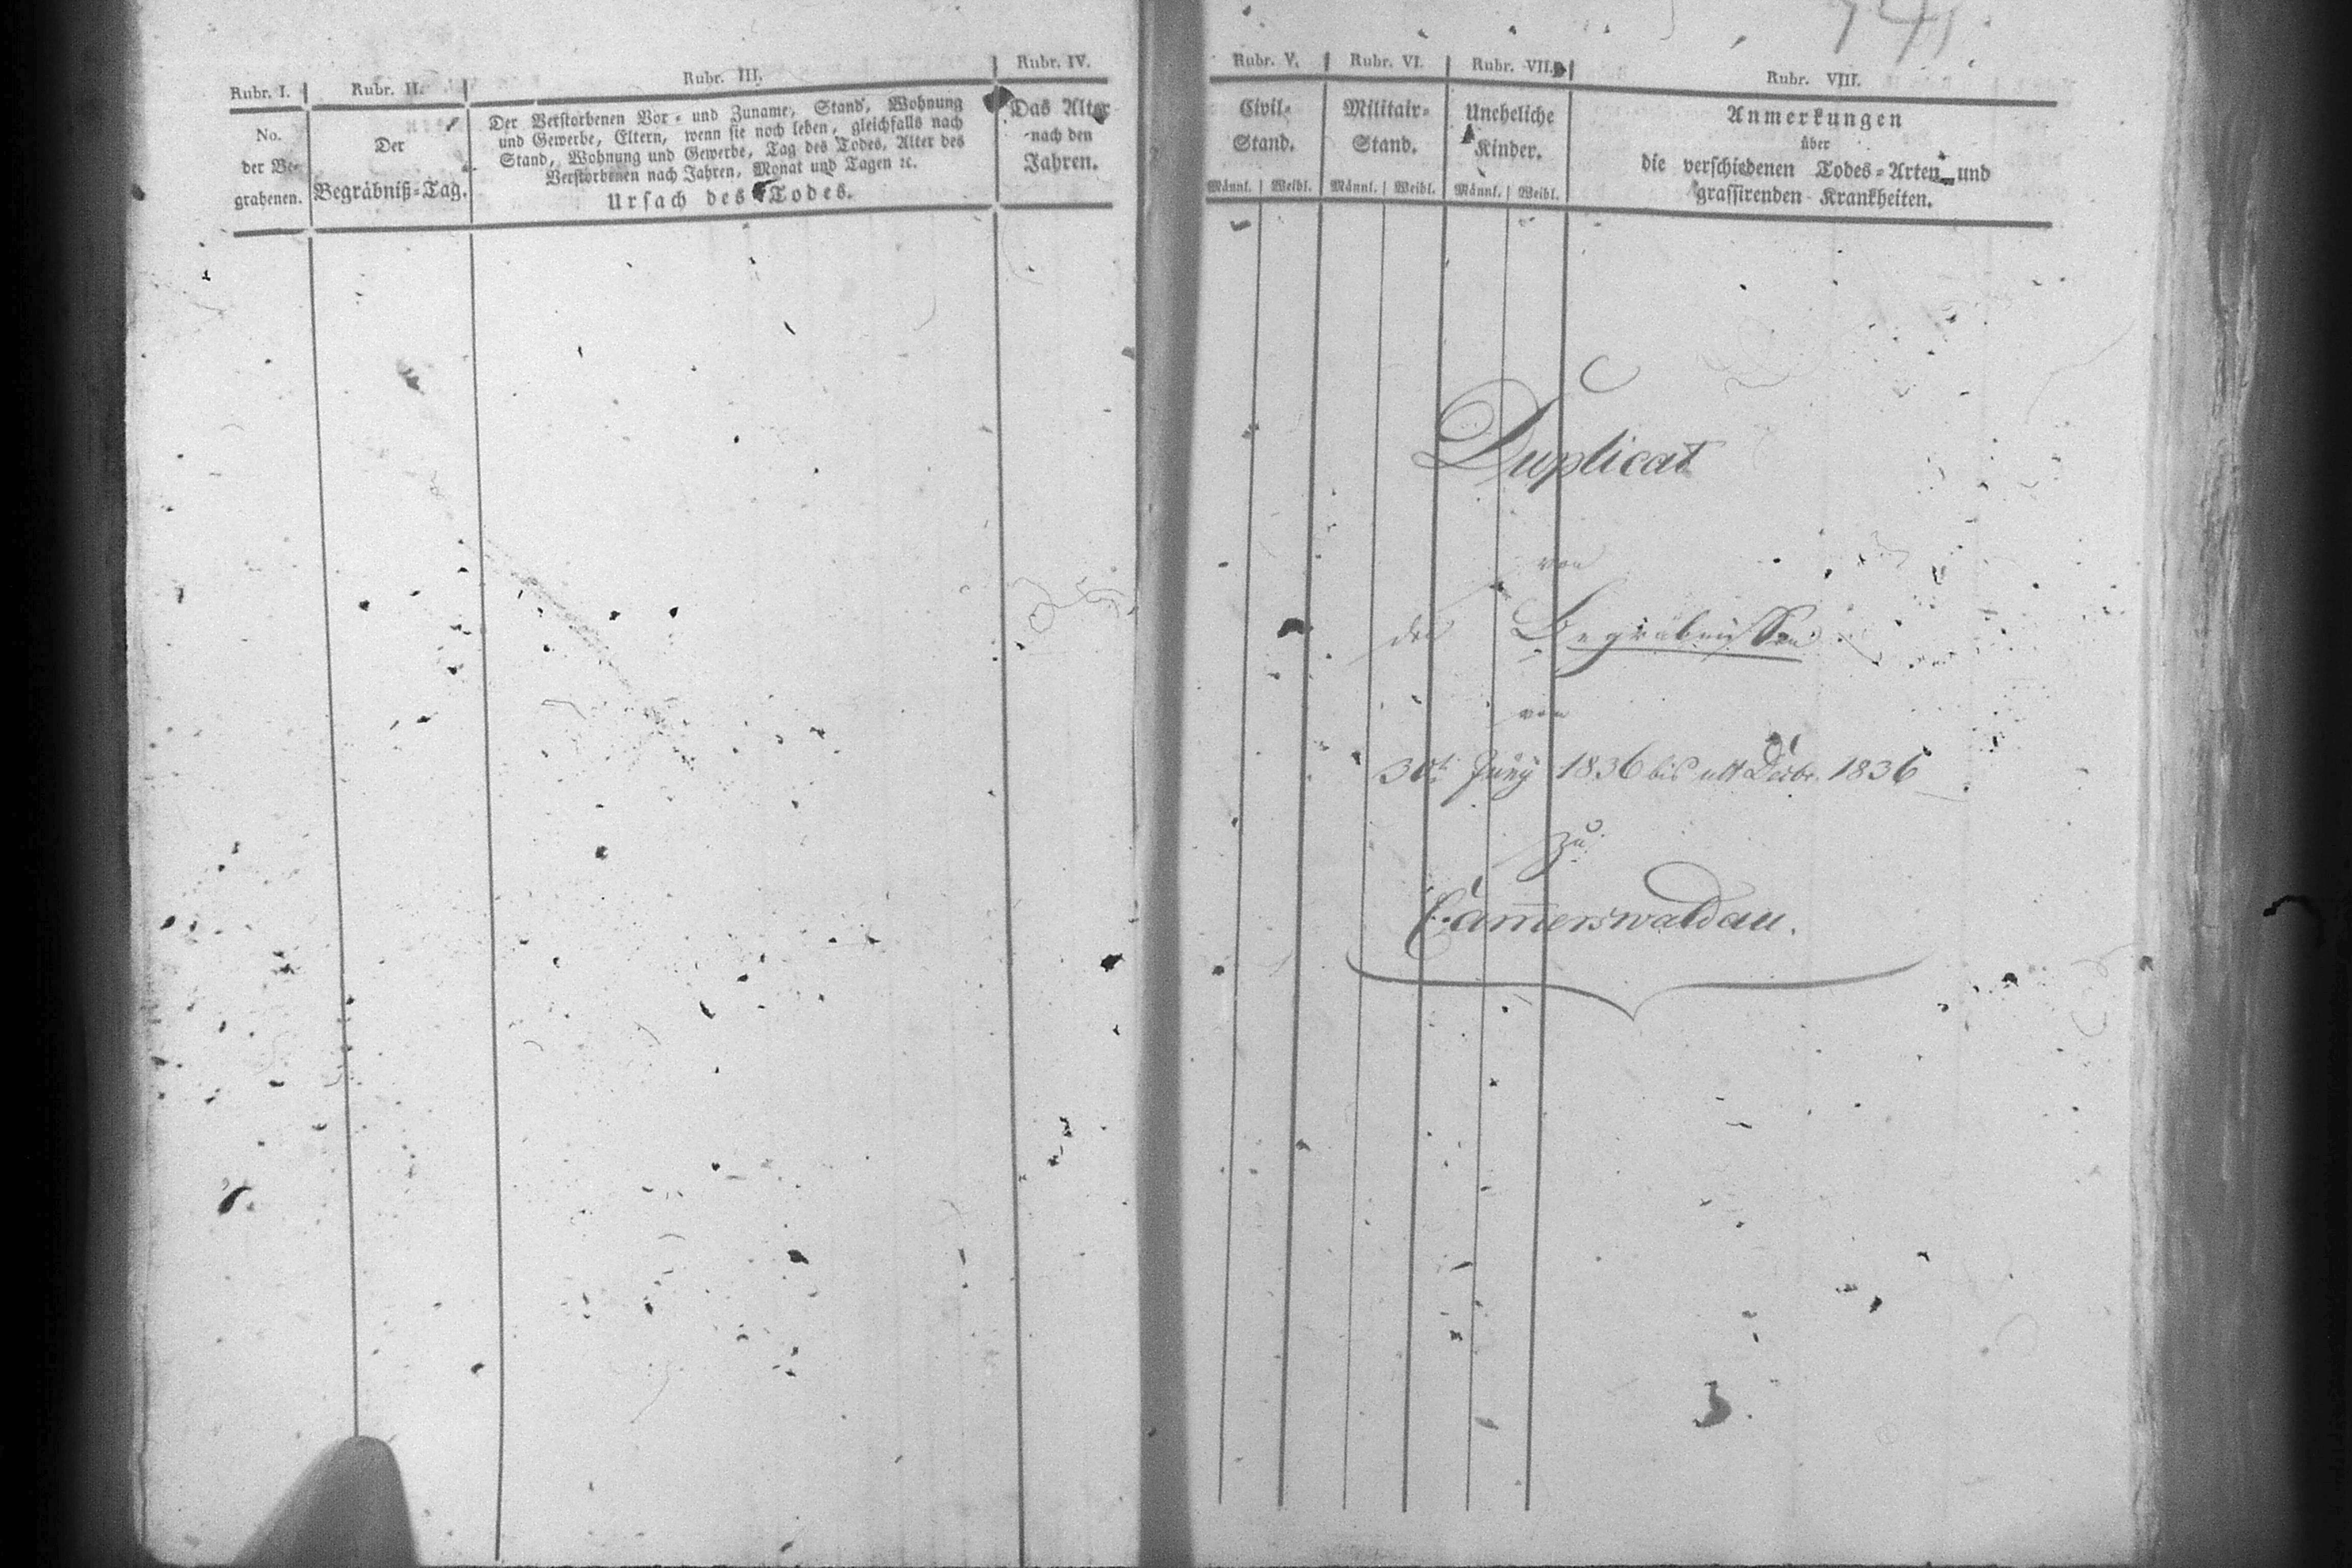 Rubr. I.
No.
der Be-
grabenen.
Rubr. II.
Der
Begräbniß-Tag.
Rubr. III.
Der Verstorbenen Vor- und Zuname, Stand, Wohnung
und Gewerbe, Eltern, wenn sie noch leben, gleichfalls nach
Stand, Wohnung und Gewerbe, Tag des Todes, Alter des
Verstorbenen nach Jahren, Monat und Tagen ꝛc.
Ursach des Todes.
Rubr. IV.
Das Alter
nach den
Jahren.
Rubr. V.
Civil-
Stand.
Männl. Weibl.
Rubr. VI.
Militair-
Stand.
Männl. Weibl.
Rubr. VII.
Uneheliche
Kinder.
Männl. Weibl.
Rubr. VIII.
Anmerkungen
über
die verschiedenen Todes-Arten und
grassirenden Krankheiten.
Duplicat
von
den Begräbnissen
von
30t Juny 1836 bis ult Decbr. 1836
zu
Cam̅erswaldau.